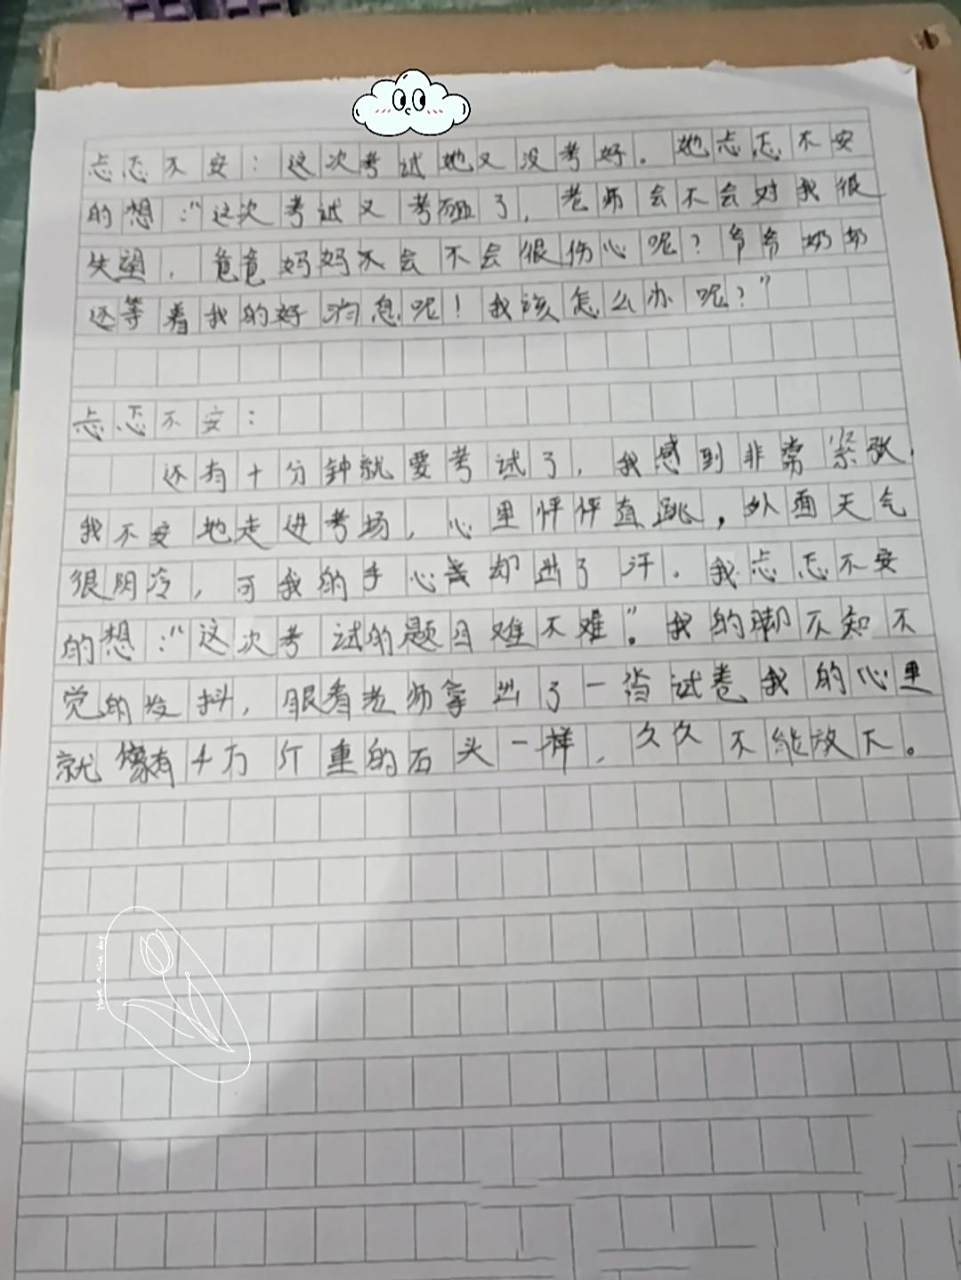 忐忑不安：这次考试她又没考好。她忐忑不安
的想：“这次考试又考砸了，老师会不会对我很
失望，爸爸妈妈会不会很伤心呢？爷爷奶奶
还等着我的好消息呢！我该怎么办呢？”
忐忑不安：
还有十分钟就要考试了，我感到非常紧张，
我不安地走进考场，心里怦怦直跳，外面天气
很阴冷，可我的手心里却出了汗。我忐忑不安
的想：“这次考试的题目难不难”。我的脚不知不
觉的发抖，眼看老师拿出了一沓试卷我的心里
就像有千万斤重的石头一样，久久不能放下。
Have a nice day